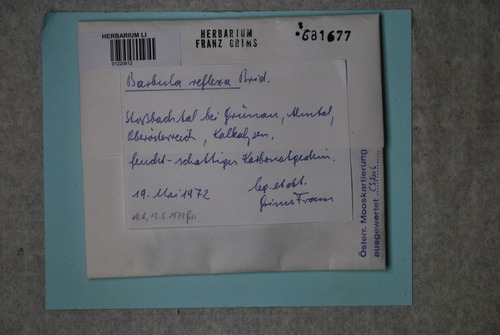 HERBARIUM LI
01220610
HERBARIUM
FRANZ GRIMS
681677
Barbula reflexa Brid.
bei Grünau, Almtal,
Oberösterreich, Kalkalpen,
feucht-schattiges Karbonatgestein.
19. Mai 1972
leg. et det.
Grims Franz
Österr. Mooskartierung
ausgewertet